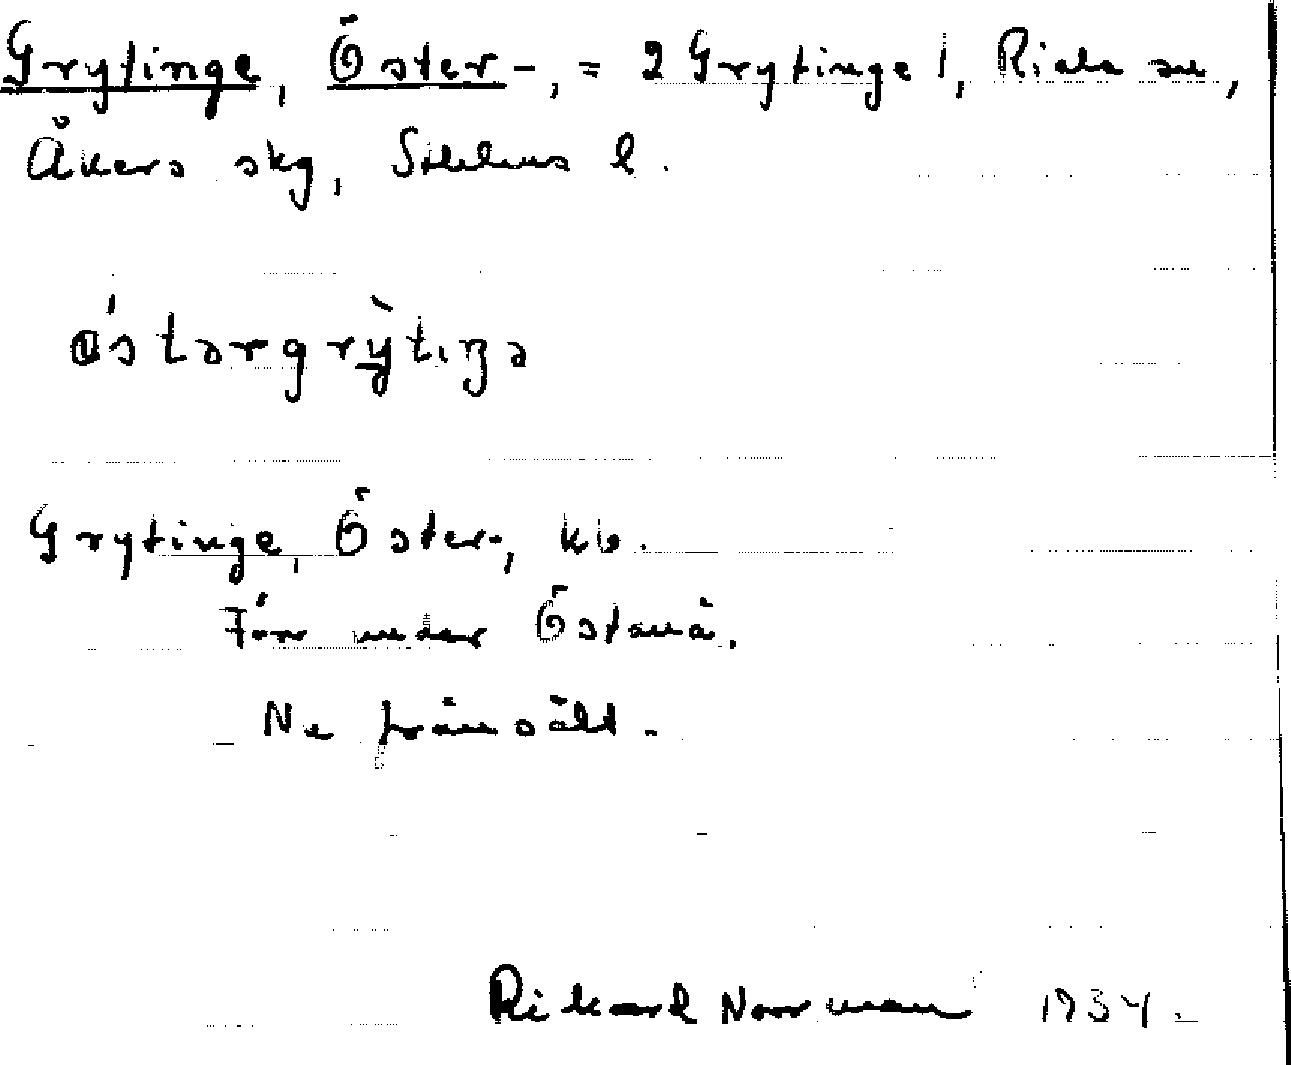 Grytinge, Öster-, = 2 Grytinge 1, Riala sn,
Åkers skg, Sthlms l.
östərgrỳtıŋə
Grytinge, Öster-, kb.
Förr under Östanå.
Nu frånsålt.
Rikard Norrman 1934.